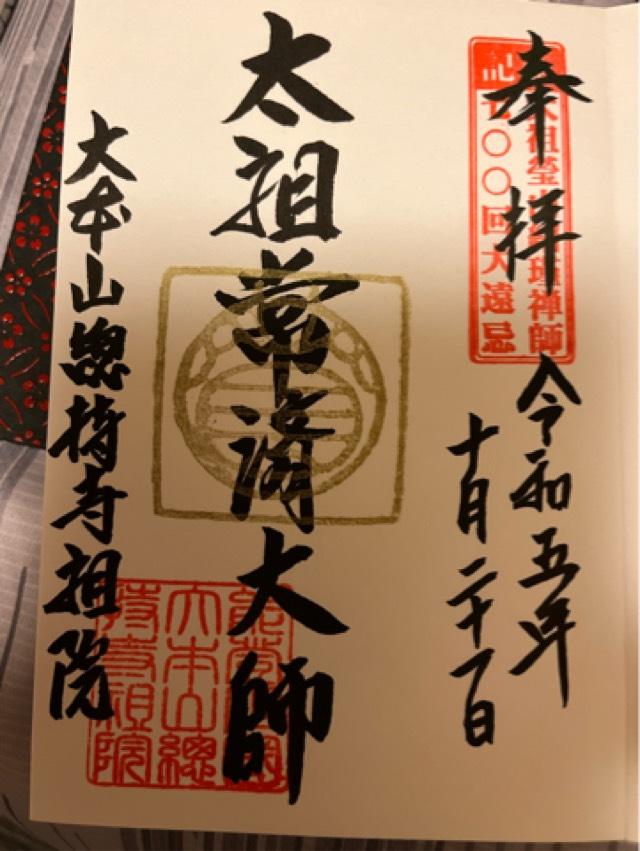 奉拝
令和五年
十月二十一日
太祖瑩山紹瑾禅師
七〇〇回大遠忌
太祖常済大師
大本山總持寺祖院
大本山總
持寺祖院